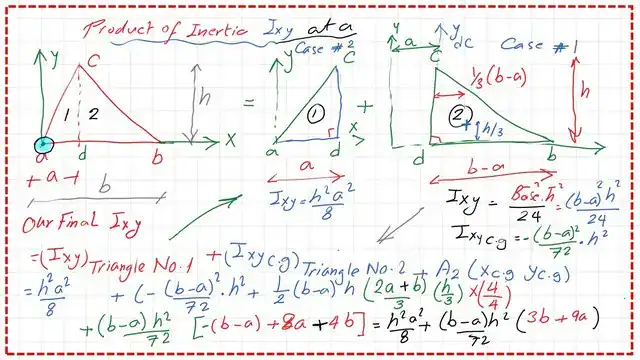 Product of Inertia Ixy at a
Case # 2
Case # 1
y
C
1 2
a d b x
h
=
y
C
1
x
a d
+
y
a
y dc
C
1/3(b-a)
2
h/3
h
d b
+ a +
b
a
b-a
Ixy = h²a²/8
Ixy = Base².h²/24 = (b-a)²h²/24
Ixy c.g = -(b-a)²/72 . h²
Our Final Ixy
=(Ixy) Triangle No.1 + (Ixy c.g) Triangle No.2 + A2 (xc.g yc.g)
= h²a²/8 + (-(b-a)²/72 . h² + 1/2 (b-a) h (2a+b)/3 (h/3) x(4/4)
+ (b-a)h²/72 [-(b-a)+8a+4b] = h²a²/8 + (b-a)h²/72 (3b+9a)